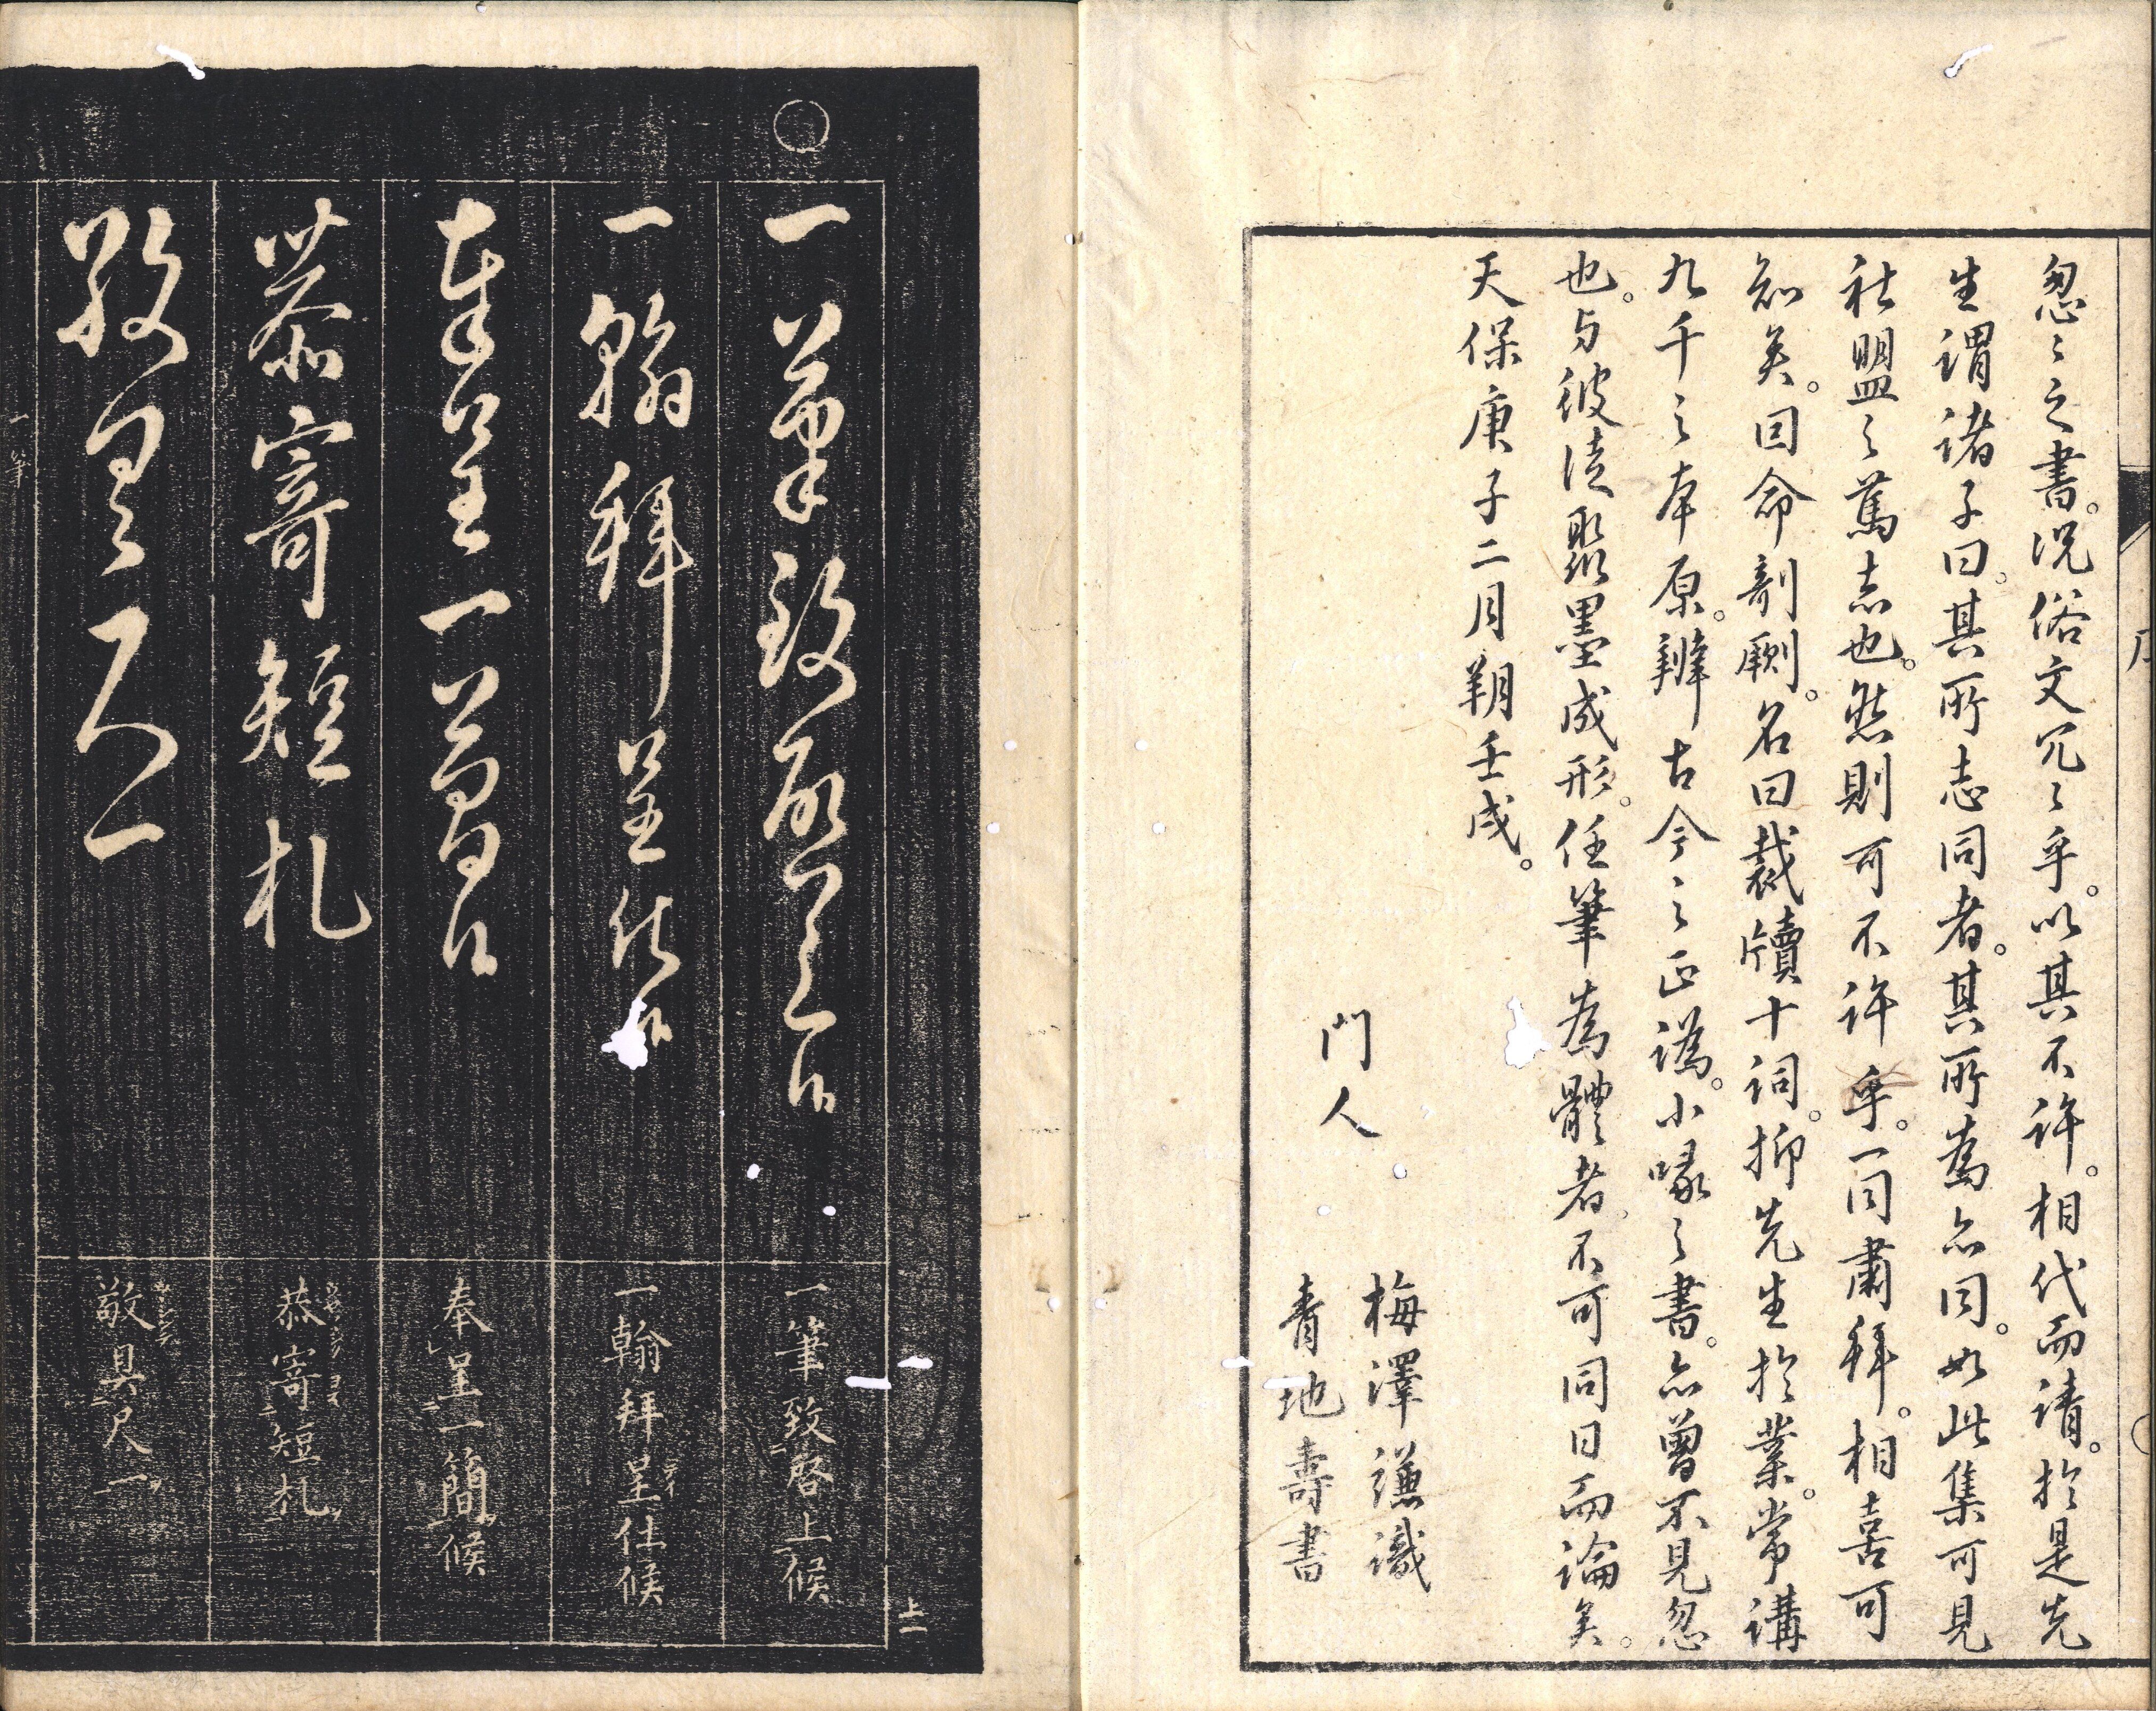 忽〻之書。況俗文冗〻乎。以其不許。相代而請。於是先
生謂諸子曰。其所志同者。其所為亦同。如此集可見
社盟之篤志也。然則可不許乎。一同肅拜。相喜可
知矣。回命剞劂。名曰裁牘十詞。抑先生於業。常講
九千之本原。辨古今之正譌。小喙之書。亦曽不見忽
也。与彼徒聚墨成形。任筆為體者。不可同日而論矣。
天保庚子二月朔壬戌。
門人
梅澤謙識
青地壽書
序
○
一筆致啓上候
一翰拜呈仕候
奉呈一簡候
恭寄短札
敬具尺一
一筆致啓上候
一翰拜呈仕候
奉呈一簡候
恭寄短札
敬具尺一
上一
一筆